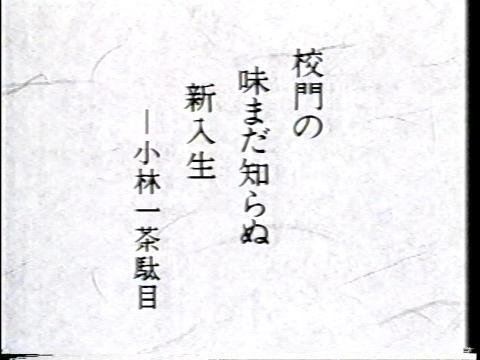 校門の
味まだ知らぬ
新入生
―小林一茶駄目